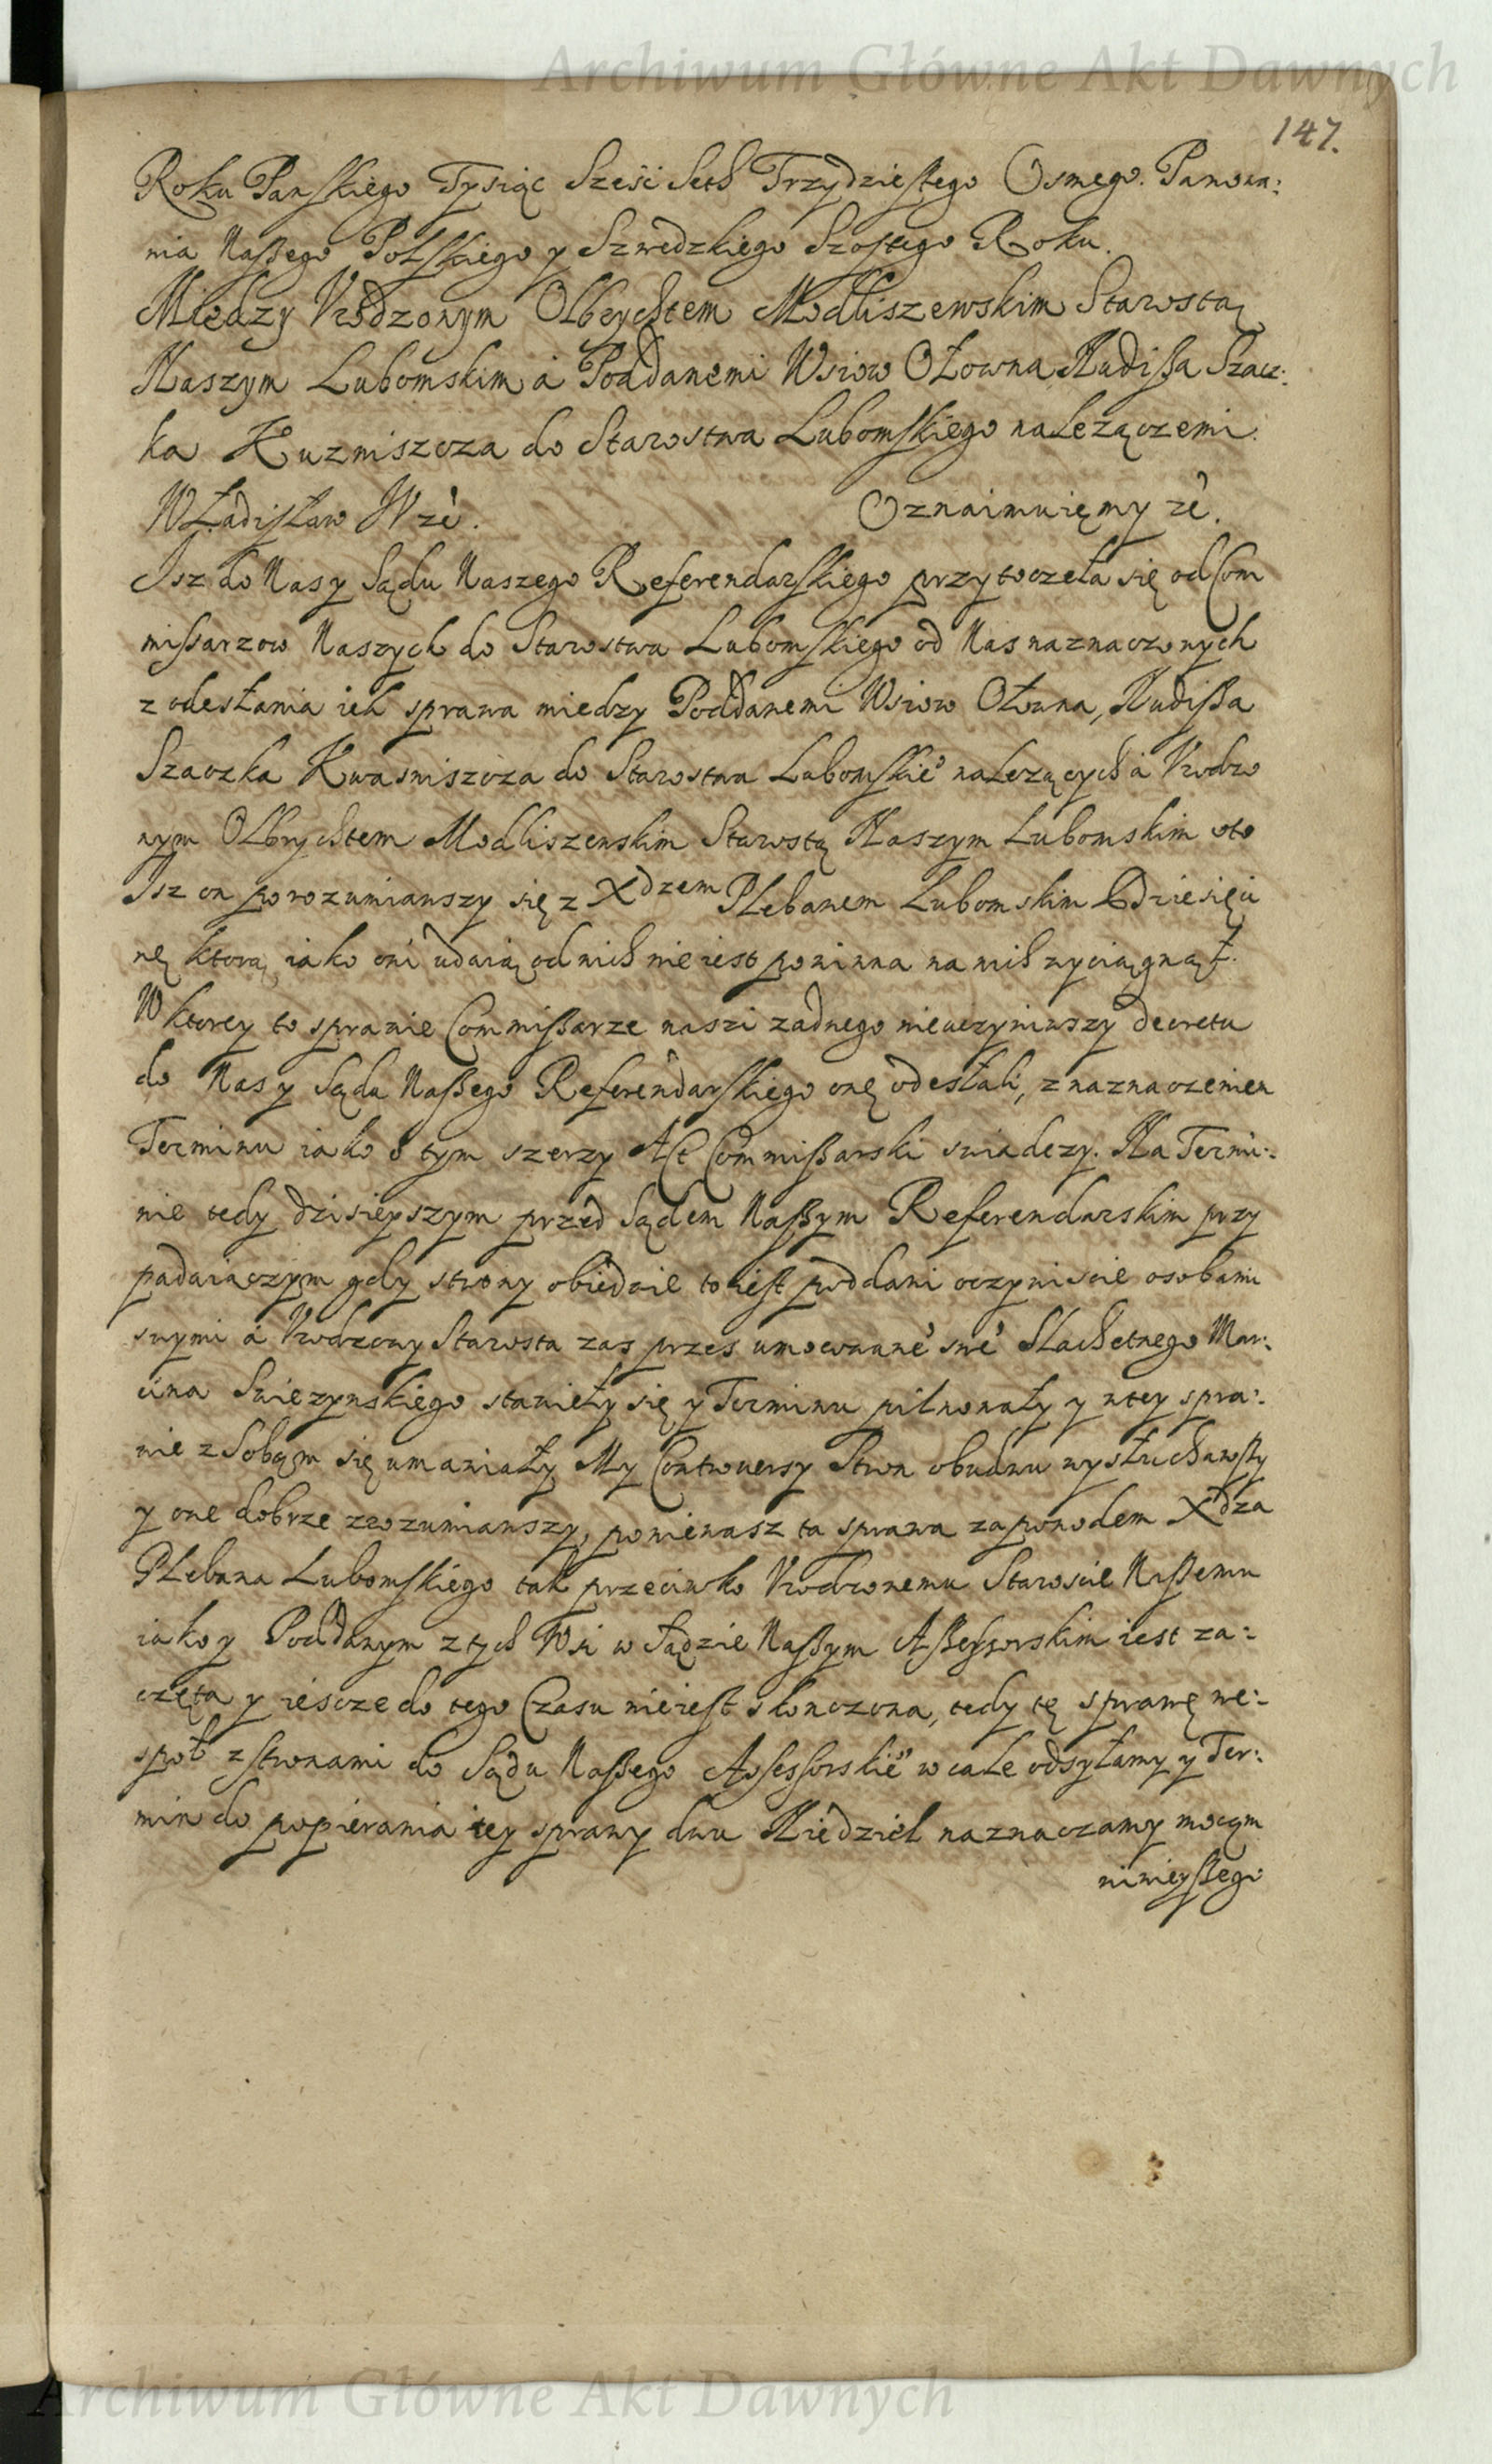 Archiwum Główne Akt Dawnych
147.
Roku Panskiego Tysiąc Sześć Seth Trzydziestego Osmego. Panowa:
nia Naszego Polskiego y Szwedzkiego Szostego Roku.
Miedzy Vrodzonym Olbrychtem Modliszewskim Starostą
Naszym Lubomskim a Poddanemi Wsiow Ołowna Rudissa Szacz:
ka Kuzniszcza do Starostwa Lubomskiego należączemi.
Władisław IV zè. Oznaimuięmy zè.
Isz do Nas y Sądu Naszego Referendarskiego przytoczeła się od Com
missarzow Naszych do Starostwa Lubomskiego od Nas naznaczonych
z odesłania ich sprawa miedzy Poddanemi Wsiow Ołowna, Rudissa
Szaczka Kwasniszcza do Starostwa Lubomskie° należących a Vrodzo
nym Olbrychtem Modliszewskim Starostą Naszym Lubomskim oto
Isz on porozumiawszy się z Xdzem Plebanem Lubomskim Dziesięci
nę ktorą iako oni udaią od nich nie iest powinna na nich wyciągnął.
W ktorey to sprawie Commissarze naszi zadnego nieuczyniwszy decretu
do Nas y Sądu Naszego Referendarskiego onę odesłali, z naznaczeniem
Terminu iako o tym szerzy Act Commissarski swiadczy. Na Termi:
nie tedy dzisieyszym przed Sądem Naszym Referendarskim przy
padaiaczym gdy strony obiedzie to iest poddani oczywiscie osobami
swymi a Vrodzony Starosta zas przes umocwane° swe° Slachetnego Mar:
cina Swiezynskiego stawieły się y Terminu pilnowały y w tey spra:
wie z Sobąm się umawiały My Controuersy Stron obudwu wysłuchawszy
y one dobrze zrozumiawszy, poniewasz ta sprawa za powodem Xdza
Plebana Lubomskiego tak przeciwko Vrodzonemu Staroscie Naszemu
iako y Poddanym z tych Wsi w Sądzie Naszym Assessorskim iest za:
częta y iescze do tego Czasu nieiest skonczona, tedy tę sprawę we:
społ z stronami do Sądu Naszego Assessorskie° w cale odsyłamy y Ter:
min do popierania tey sprawy dwu Niedziel naznaczamy mocąm
ninieyszego
Archiwum Główne Akt Dawnych